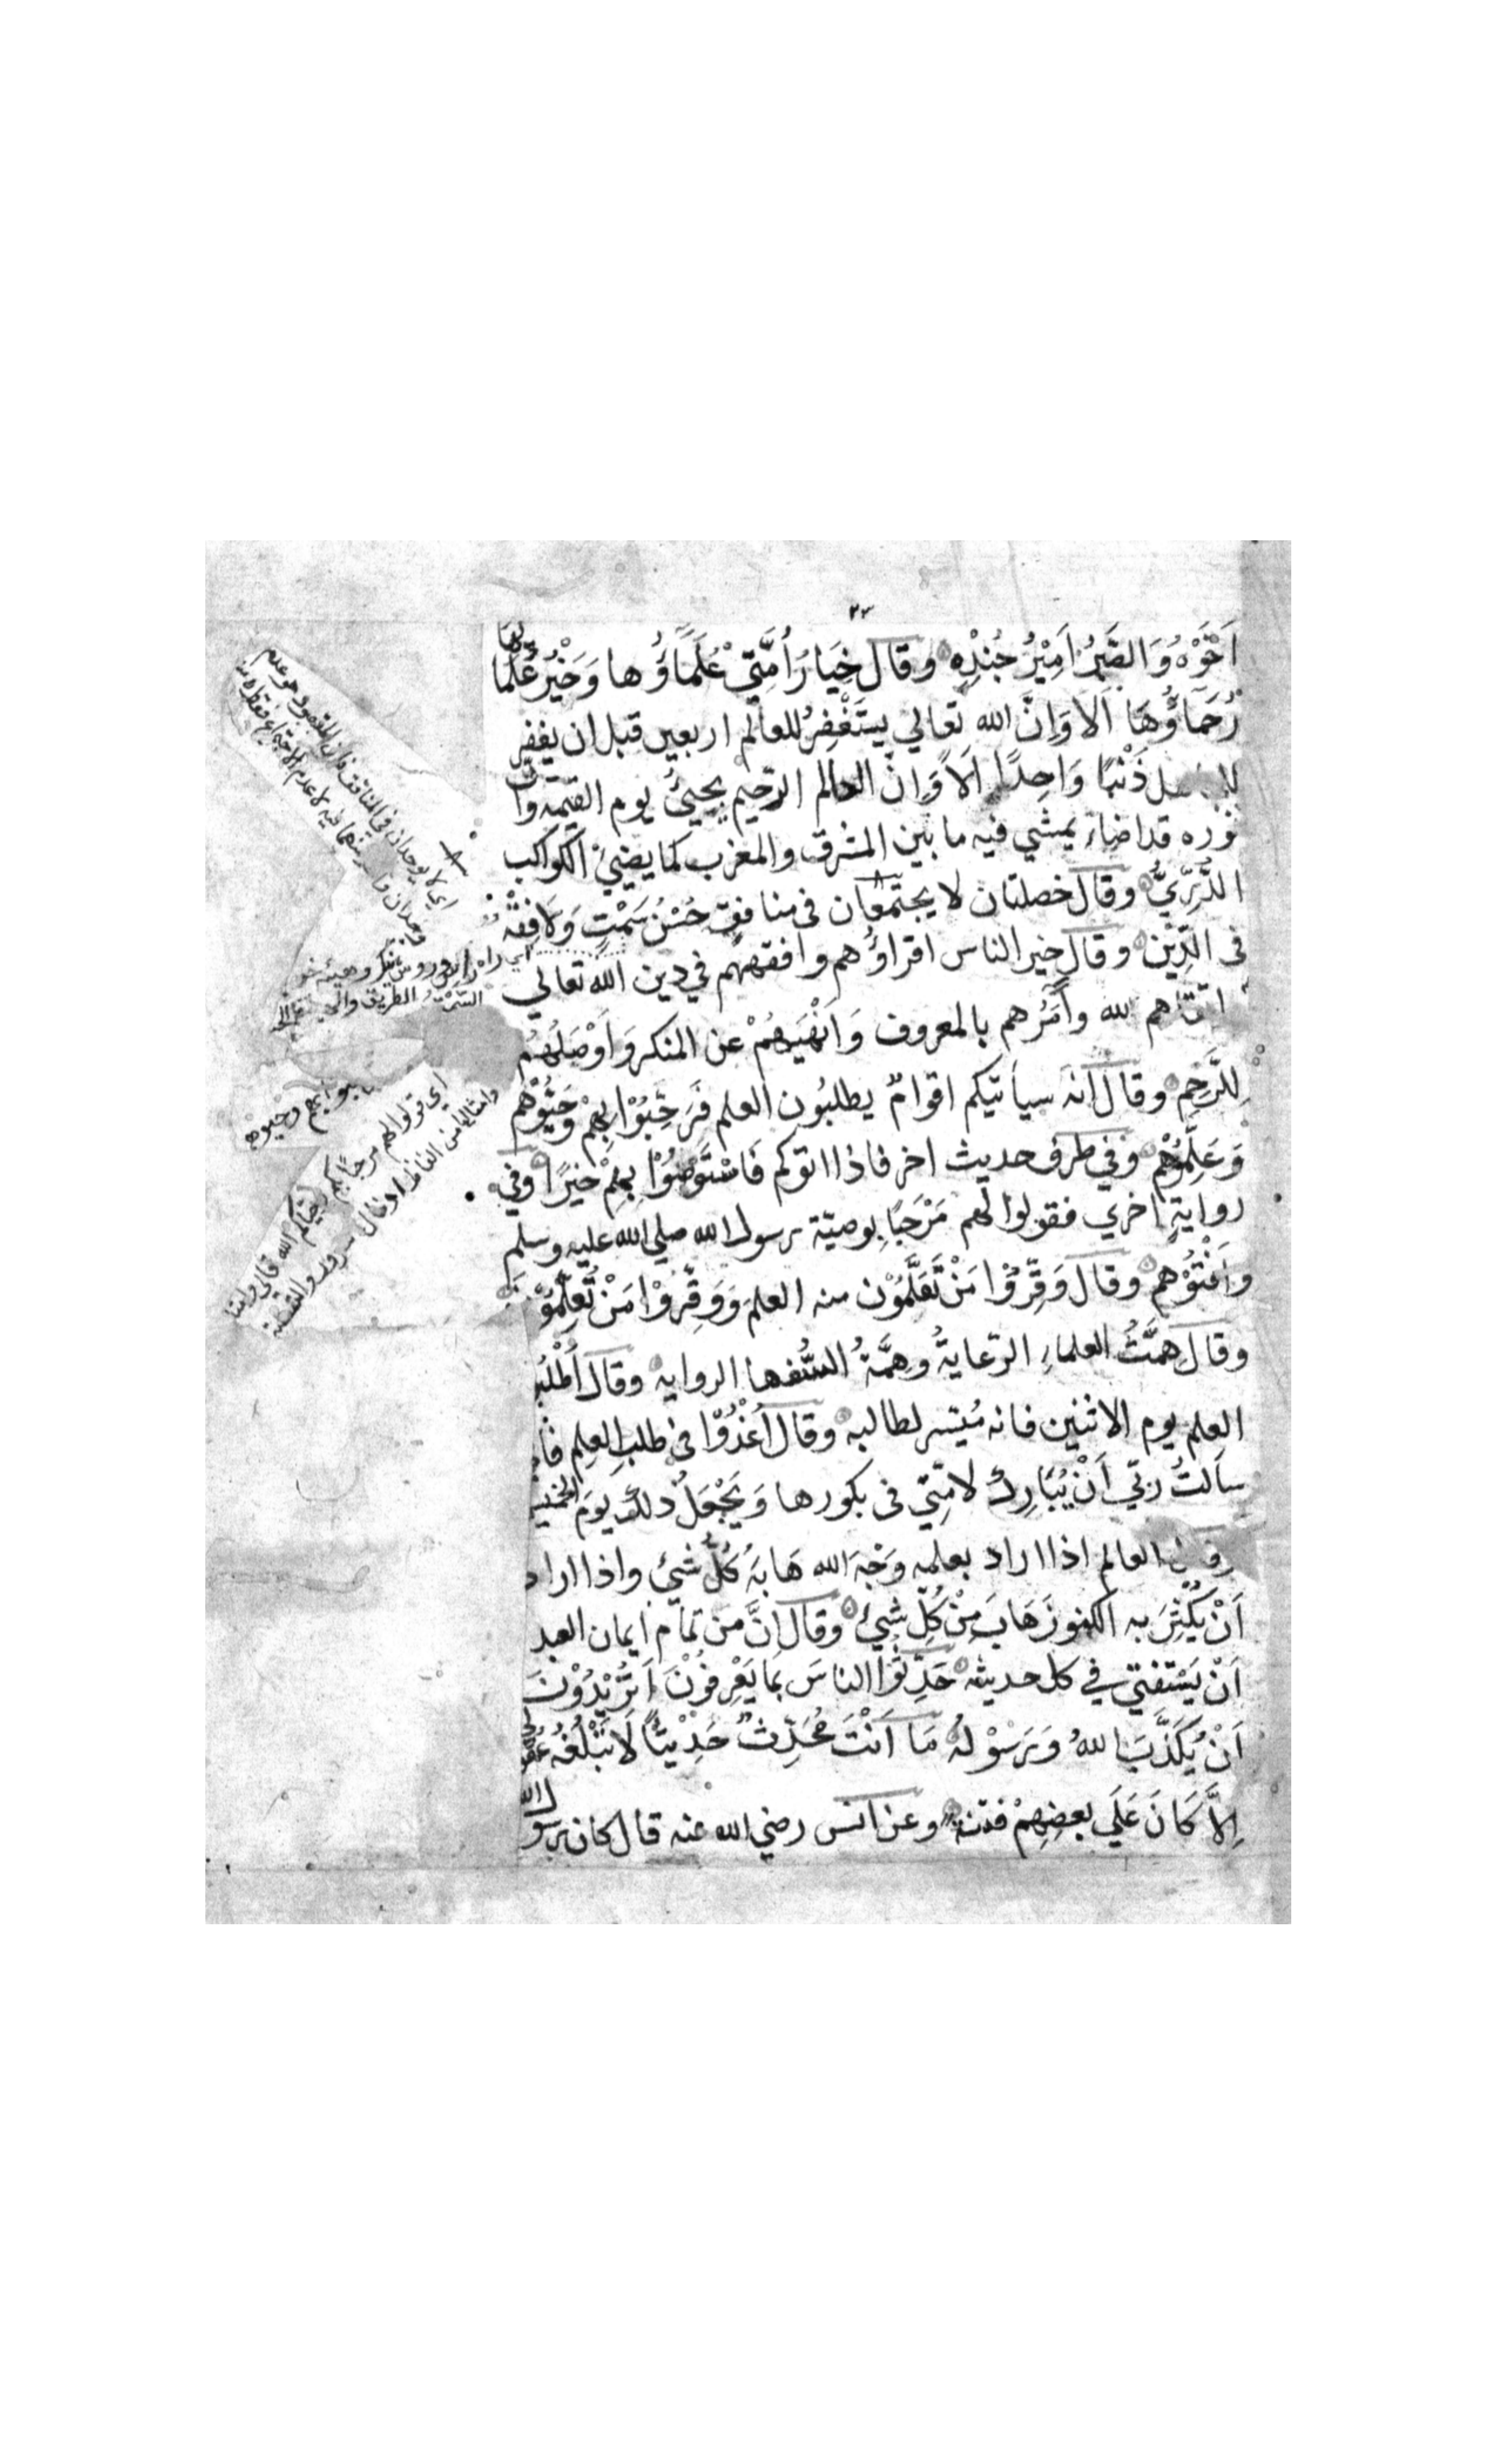 ٢٣
اَخُوْهُ وَالصَّبْرُ اَمِيْرُ جُنْدِهٖ وقال خِيَارُ اُمَّتِيْ عُلَمَاؤُها وَخَيْرُ عُلَمَائِها
رُحَمَاؤُهَا اَلَا وَاِنَّ الله تعالي يستَغْفِرُ للعالم اربعين قبل ان يغفر
ذَنْبًا وَاحِدًا اَلَا وَاِنَّ العالم الرّحيم يجيئُ يوم القيمة وانّ
نوره قد اضاء يمشي فيه ما بين المشرق والمغرب كما يضيئ الكواكب
الدُّرِّيُّ وقال خصلتان لا يجتمعان في منافق حُسْنُ سَمْتٍ وَلَا فِقْهٌ
فى الدِّيْن وقال خير الناس اقراؤُهم وافقههم في دين الله تعالي
اتقاهم لله وآمَرُهم بالمعروف وَاَنْهَيهُمْ عن المنكر وَاَوْصَلُهُم
لِلرَّحِمِ وقال انه سيأتيكم اقوامٌ يطلبُون العلم فَرَحِّبُوْا بِهِمْ وَحَيُّوْهُم
وَعَلِّمُوْهُم وفي طرف حديث اخر فاذا اتوكم فَاسْتَوْصُوْا بِهِمْ خيرًا وفي
روايةٍ اخري فقولوا لهم مَرْحَبًا بِوصيّة رسول الله صلي الله عليه وسلم
وَاَفْتُوْهُم وقال وَقِّرُوْا مَنْ تَعَلَّمُوْن منه العلمَ وَوَقِّرُوْا مَنْ تُعَلِّمُوْنَهُ
وقال هِمَّتُ العلماءِ الرّعايةُ وهِمَّةُ السُّفها الرواية وقال اُطْلُبُوا
العلم يوم الاثنين فانه مُيَسّر لطالبه وقال اُغْدُوْا فى طلب العِلم فانى
سالتُ ربّي اَنْ يُبَارِك لامّتِيْ فى بكورها وَيَجْعَلُ ذلك يومَ الخميس
العالم اذا اراد بعلمه وَجْهَ الله هَابَهُ كُلُّ شيئٍ واذا اراد
اَنْ يُكْثِرَ به الكنوزَ هَابَ مِنْ كُلّ شيئ وقال اِنَّ من تمام ايمان العبد
اَنْ يَسْتفتيَ في كل حديثه حَدِّثُوا الناسَ بمَا يَعْرِفُوْنَ اَتُرِيْدُوْنَ
اَنْ يُكَذَّبَ اللهُ وَرَسُوْلُهُ مَا اَنْتَ مُحَدِّثٌ حَدِيْثًا لَا تَبْلُغُهُ عقولهم
اِلاَّ كَانَ عَلَي بعضِهِمْ فتنةً وعن انس رضي الله عنه قال كان رسول الله
اي لا يوجدان في المنافق فان المقصود هو عدم
السَّمْتُ الطريق
اي قولوا لهم مرحبا بكم